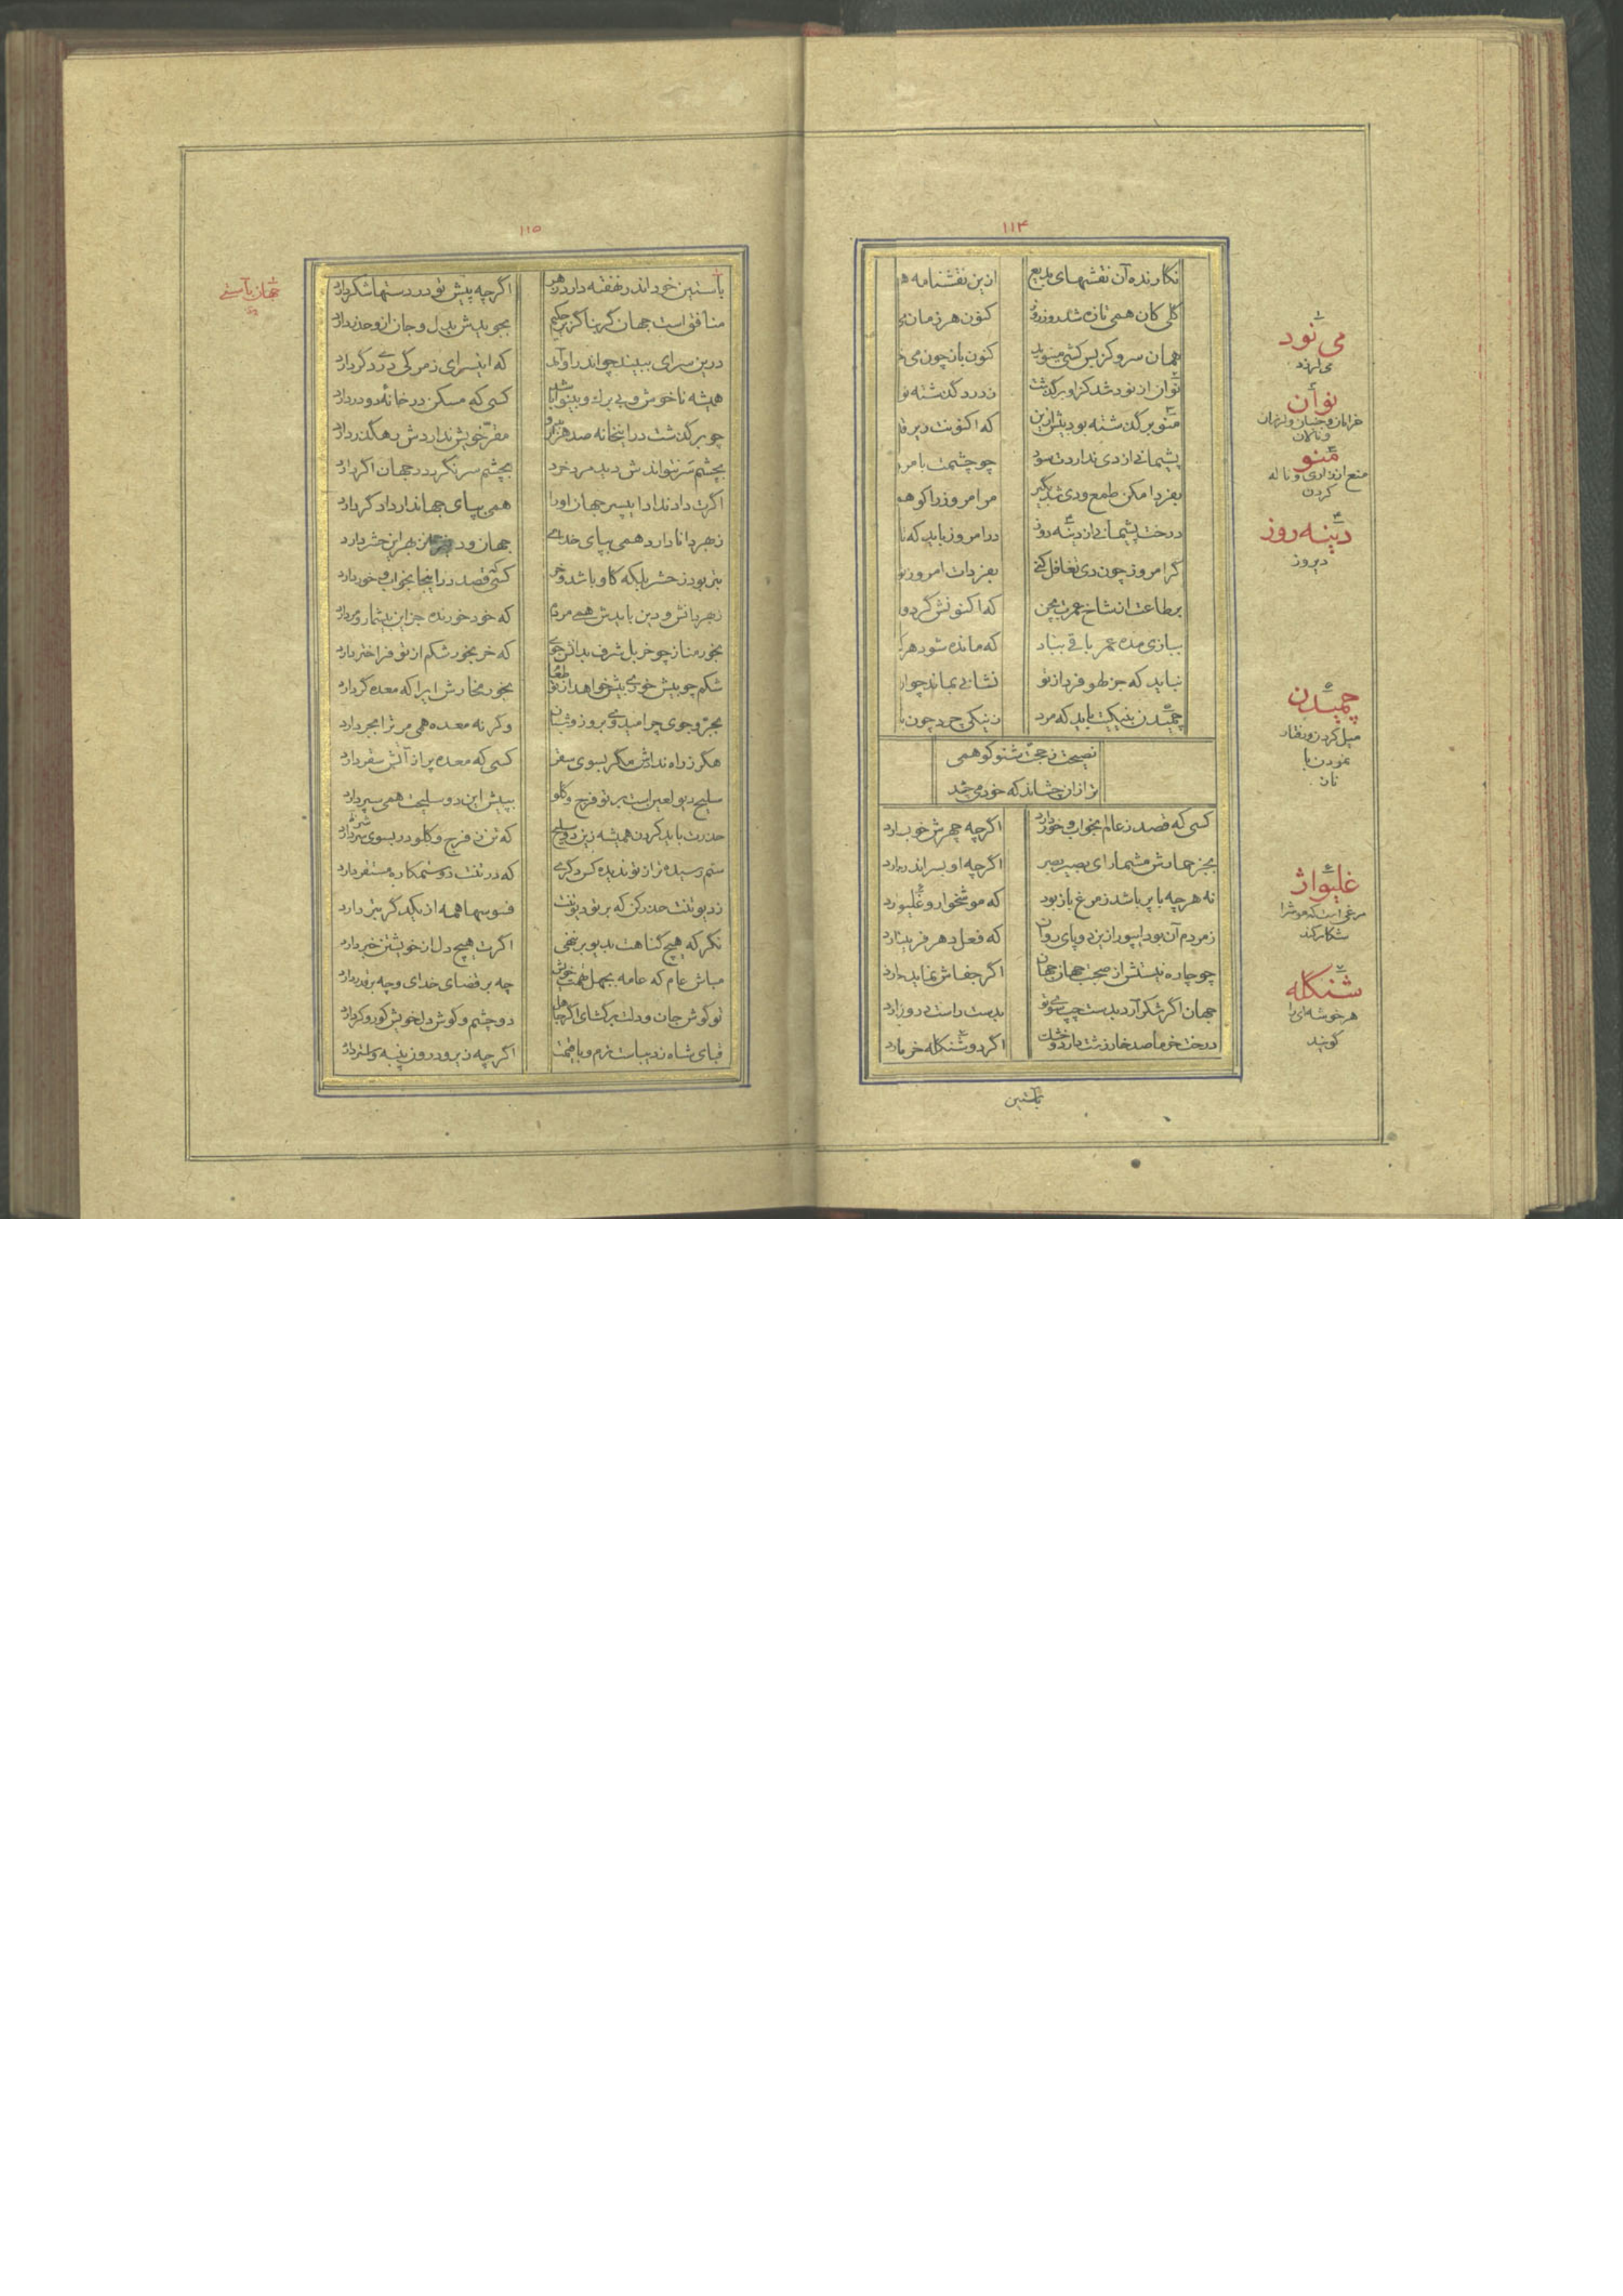 ۱۱۴
نگارنده آن نقشهای بدیع ازین نقشنامه
گلی کان همی تازه شد روز روز کنون هر زمان
همان سرو کز بس کشی مینوید کنون باز چون می
نوان از نود شد کز او برگذشت ز درد گذشته نو
منو برگذشته بود پیش ازین که اکنونت زیر
پشیمانی از دی نداردت سود چو چشمت بامر
بفردا مکن طمع و دی شد بگیر مر امروز را کو
درخت پشیمانی از دینه روز در امروز باید که
گر امروز چون دی تغافل کنی بفردات امروز
بر طاعت از شاخ عمرت بچن که اکنونش گرد
ببازی مده عمر باقی بباد که مانده شود هر
نباید که جز لهو فردا ز تو نشانی نماند چو
چمیدن بنیکیت باید که مرد ز نیکی چمد چون
نصیحت ز حجت شنو کو همی
ترا زان چشاند که خود می‌چشد
کسی که قصد ز عالم بخواب و خور دارد اگرچه چهرش خوب
بجز حمارش مشمار ای بصیر اگرچه او بسر اندر
نه هرچه با پر باشد ز مرغ باز بود که موشخوار و غلیواژ
ز مردم آن بود ای پور ازین دو پای روان که فعل دهر فریبنده
چو چاره نیستش از صحبت جهان جهان اگر جفاش نماید
جهان اگر شکر آرد بدست چپ سوی تو بدست راست درون
درخت خرما صد خار زشت دارد و خشک اگر دو شنگله خرما
بآستین
می نود
می لرزد
نوان
خرامان و جنبان و لرزان
و نالان
منو
منع از زاری و ناله
کردن
دینه روز
دیروز
چمیدن
میل کردن و رفتار
نمودن با
ناز
غلیواژ
مرغی است که موش را
شکار کند
شنگله
هر خوشه‌ای را
گویند
۱۱۵
بآستین خود اندر نهفته دارد زهر اگرچه پیش تو در دستها شکر دارد
منافق است جهان گر بناگزیر حکیم بجویدش بدل و جان ازو حذر دارد
درین سرای ببیند چو اندر او آمد که این سرای ز مرگی دری دگر دارد
همیشه ناخوش و بی برگ و بینوا باشد کسی که مسکن در خانهٔ دو در دارد
چو برگذشت در اینخانه صد هزار مقر خویش ندارد ش رهگذر دارد
بچشم سر نتواندش دید مرد خرد بچشم سر نگرد در جهان اگر دارد
اگرت داد نداد ای پسر جهان او را همی بپای جهاندار دادگر دارد
ز بهر دانا دارد همی بپای خدای جهان و بهر این حشر دارد
بتر بود ز حشر بلکه گاو باشد و خر کسی قصد در اینجا بخواب و خور دارد
ز بهر دانش و دین بایدش همی مردم که خود خورنده جز این بیشمار و مر دارد
بخور مناز چو خر بل شرف بدانش جوی که خر بخورد شکم از تو فراختر دارد
شکم چو بیش خوری بیش خواهد از تو طعام بخور مخارش ایرا که معده گر دارد
بجر و جوی چرا میدوی بروز و شبان وگرنه معده همی مر ترا بجر دارد
هگرز راه نداش مگر بسوی سقر کسی که معده پر از آتش سقر دارد
سلیح دیو لعین است بر تو فرج و گلو بپیش این دو سلیحت همی سپر دارد
حذرت باید کردن همیشه زین دو سلیح که تن ز فرج و گلو در بسوی شر دارد
ستم رسیده تر از تو ندید کس دگری که در تنت دو ستمکاره مستقر دارد
ز دیو تنت حذر کن که بر تو دیو تنت فسوسها همه از یکدگر بتر دارد
نگر که هیچ گناهت بدیو بر ننهی اگرت هیچ دل از خویشتن خبر دارد
مباش عام که عامه بجهل تهمت خویش چه بر قضای خدای و چه بر قدر دارد
تو گوش جان و دلت برگشای اگر جاهل دو چشم و گوش دل خویش کور و کر دارد
قبای شاه ز دیباست نرم و با قیمت اگرچه زیر و درون پنبه و استر دارد